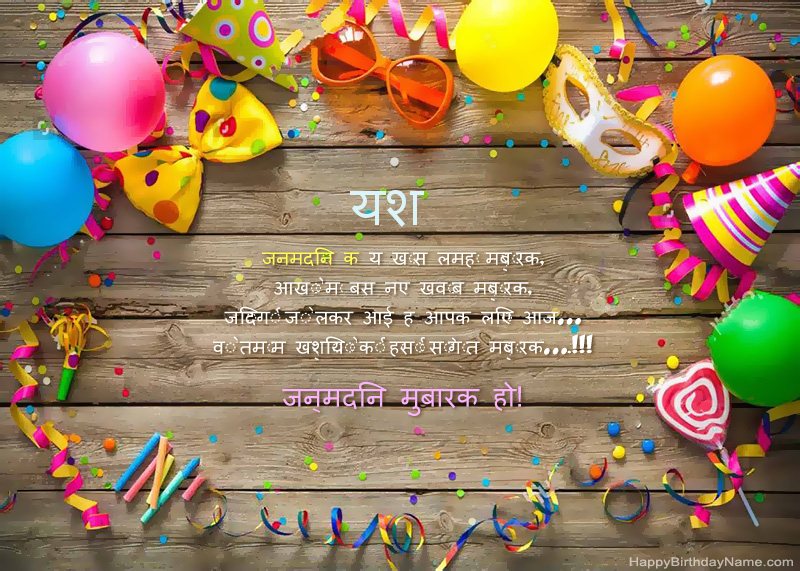 यश
जनमदनि क य खास लमह मबारक,
आखों म बस नए खवाब मबारक,
जदिगी जो लकर आई ह आपक लएि आज...
वो तमाम खशयिों की हसीं सागात मबारक...!!!
जन्मदनि मुबारक हो!
HappyBirthdayName.com